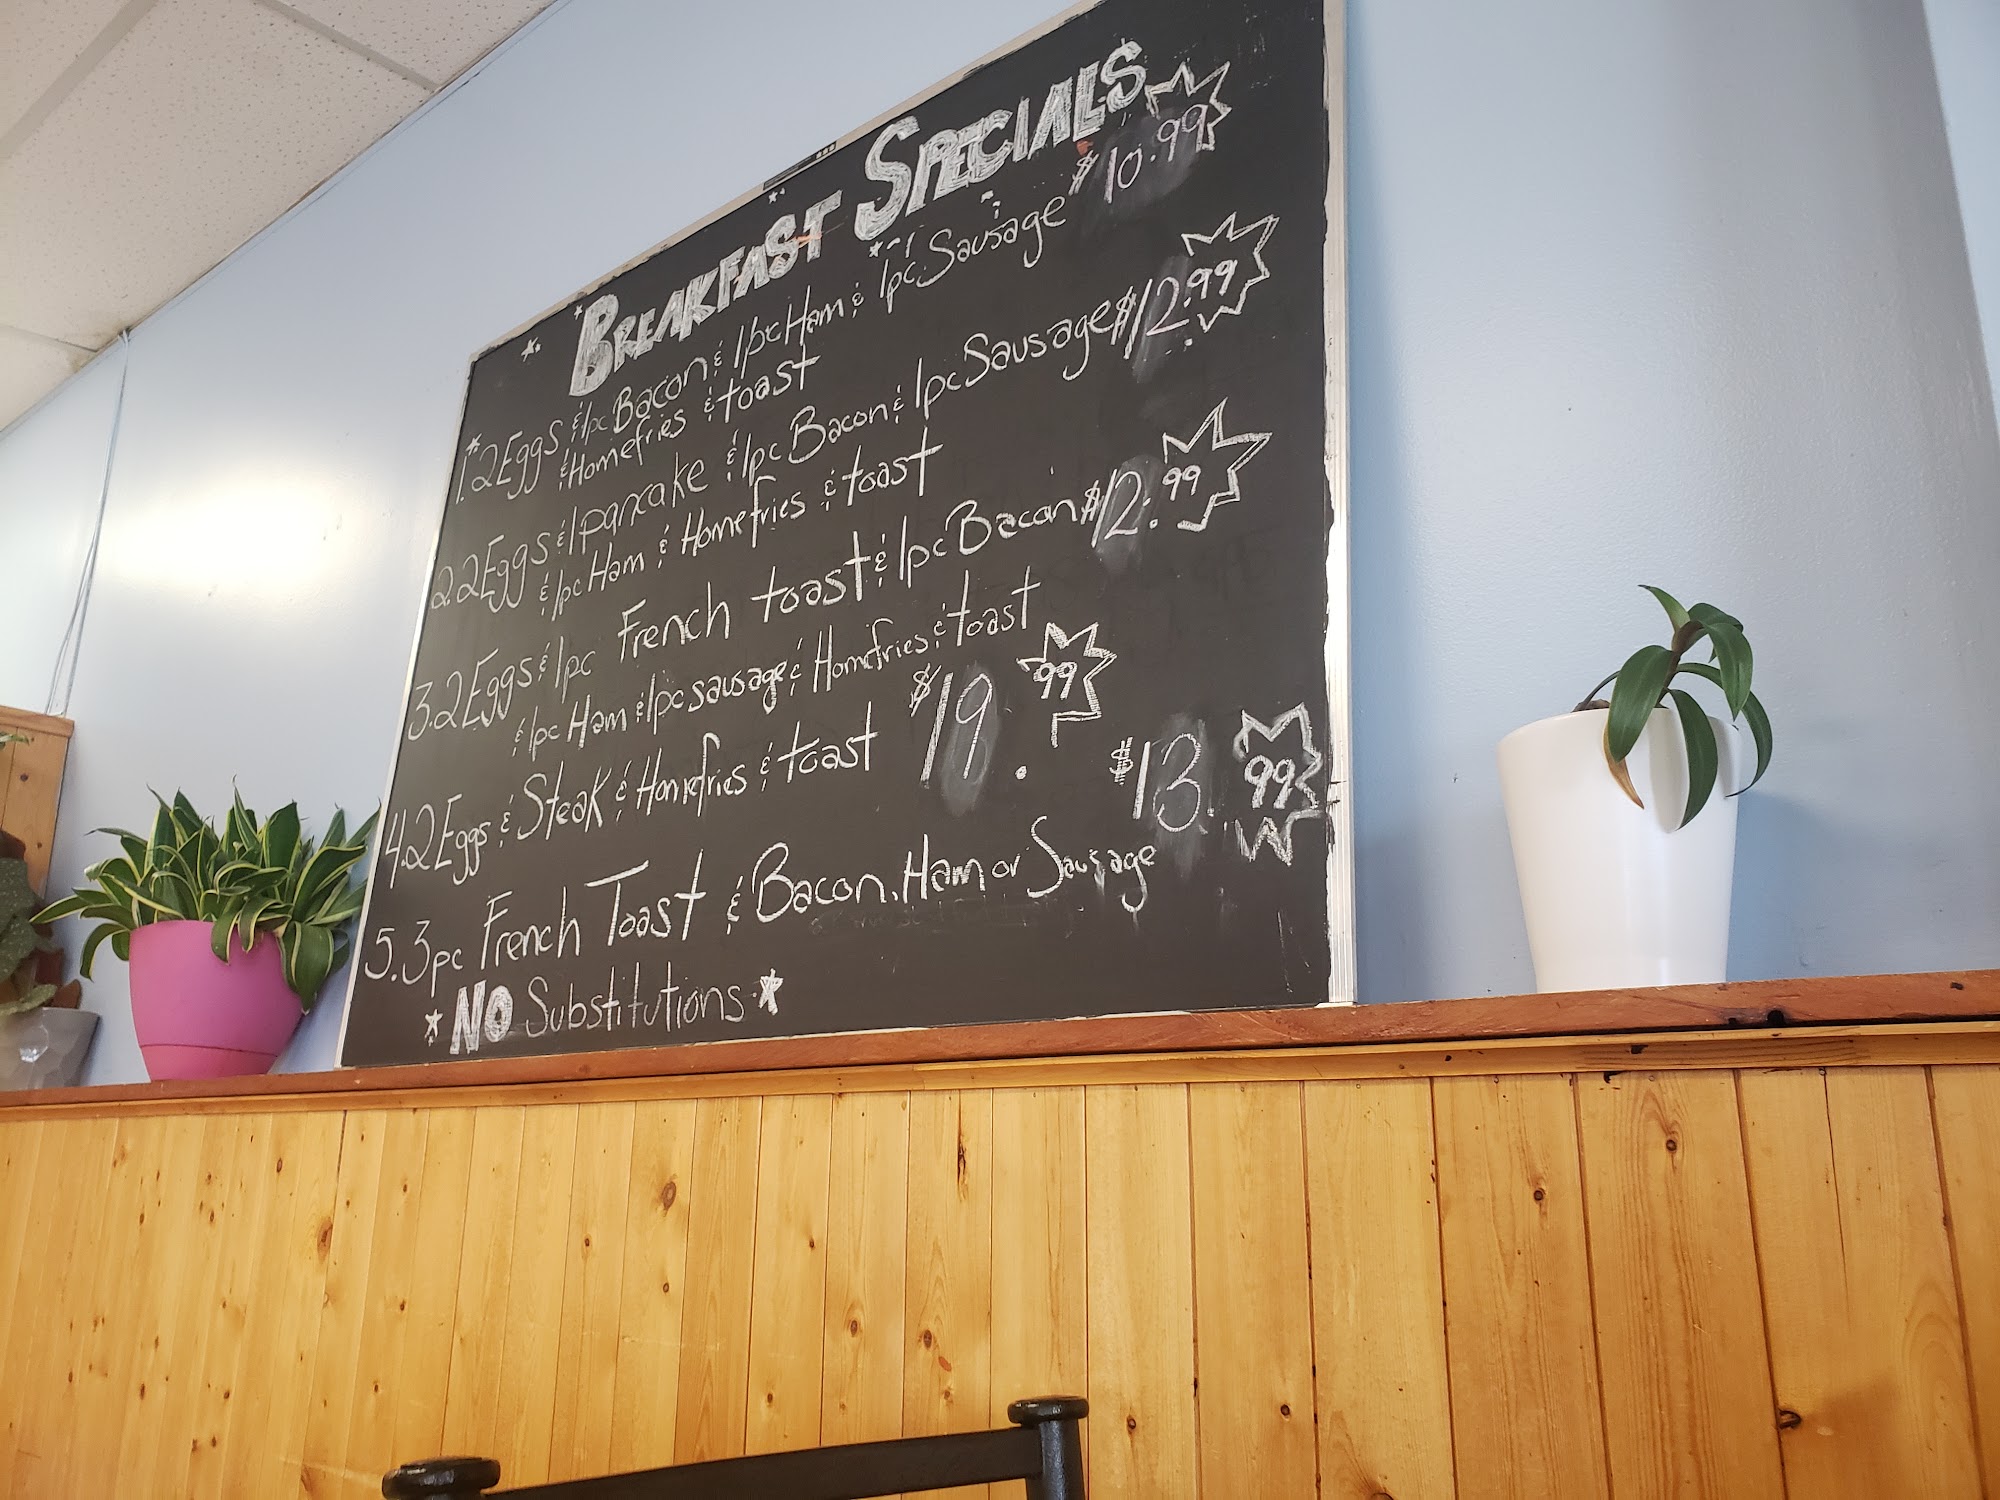 BREAKFAST SPECIALS
1. 2 Eggs & 1pc Bacon & 1pc Ham & 1pc Sausage $10.99
& Homefries & toast
2. 2 Eggs & 1 pancake & 1pc Bacon & 1pc Sausage $12.99
& 1pc Ham & Homefries & toast
3. 2 Eggs & 1pc French toast & 1pc Bacon $12.99
& 1pc Ham & 1pc sausage & Homefries & toast
4. 2 Eggs & Steak & Homefries & toast $19.99
$13.99
5. 3pc French Toast & Bacon, Ham or Sausage
* NO Substitutions *